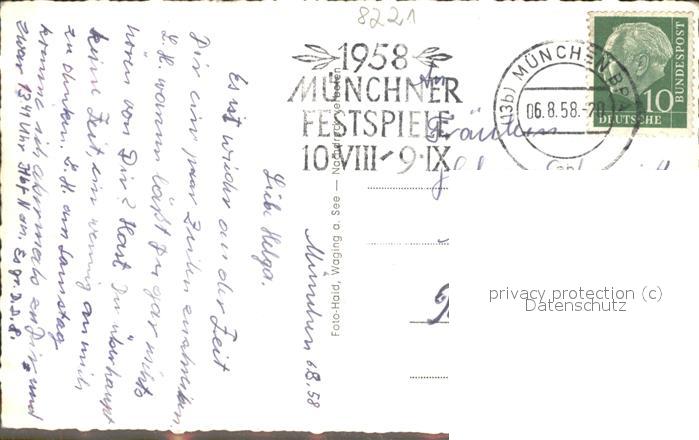 8221
1958
MÜNCHNER
FESTSPIELE
10·VIII-9·IX
(13b) MÜNCHEN BP
06.8.58.-20
10
DEUTSCHE
BUNDESPOST
An
Fräulein
Foto-Haid, Waging a. See — Nachdruck verboten
München 6.8.58
Liebe Helga.
Es ist wieder an der Zeit
Dir ein paar Zeilen zu schreiben.
L.H. warum läßt Du gar nichts
hören von Dir? Hast Du überhaupt
keine Zeit, ein wenig an mich
zu denken. L.H. am Samstag
komme ich abermals zu Dir und
zwar 13 11 Uhr Hbf N an. Es gr. D.
privacy protection (c)
Datenschutz